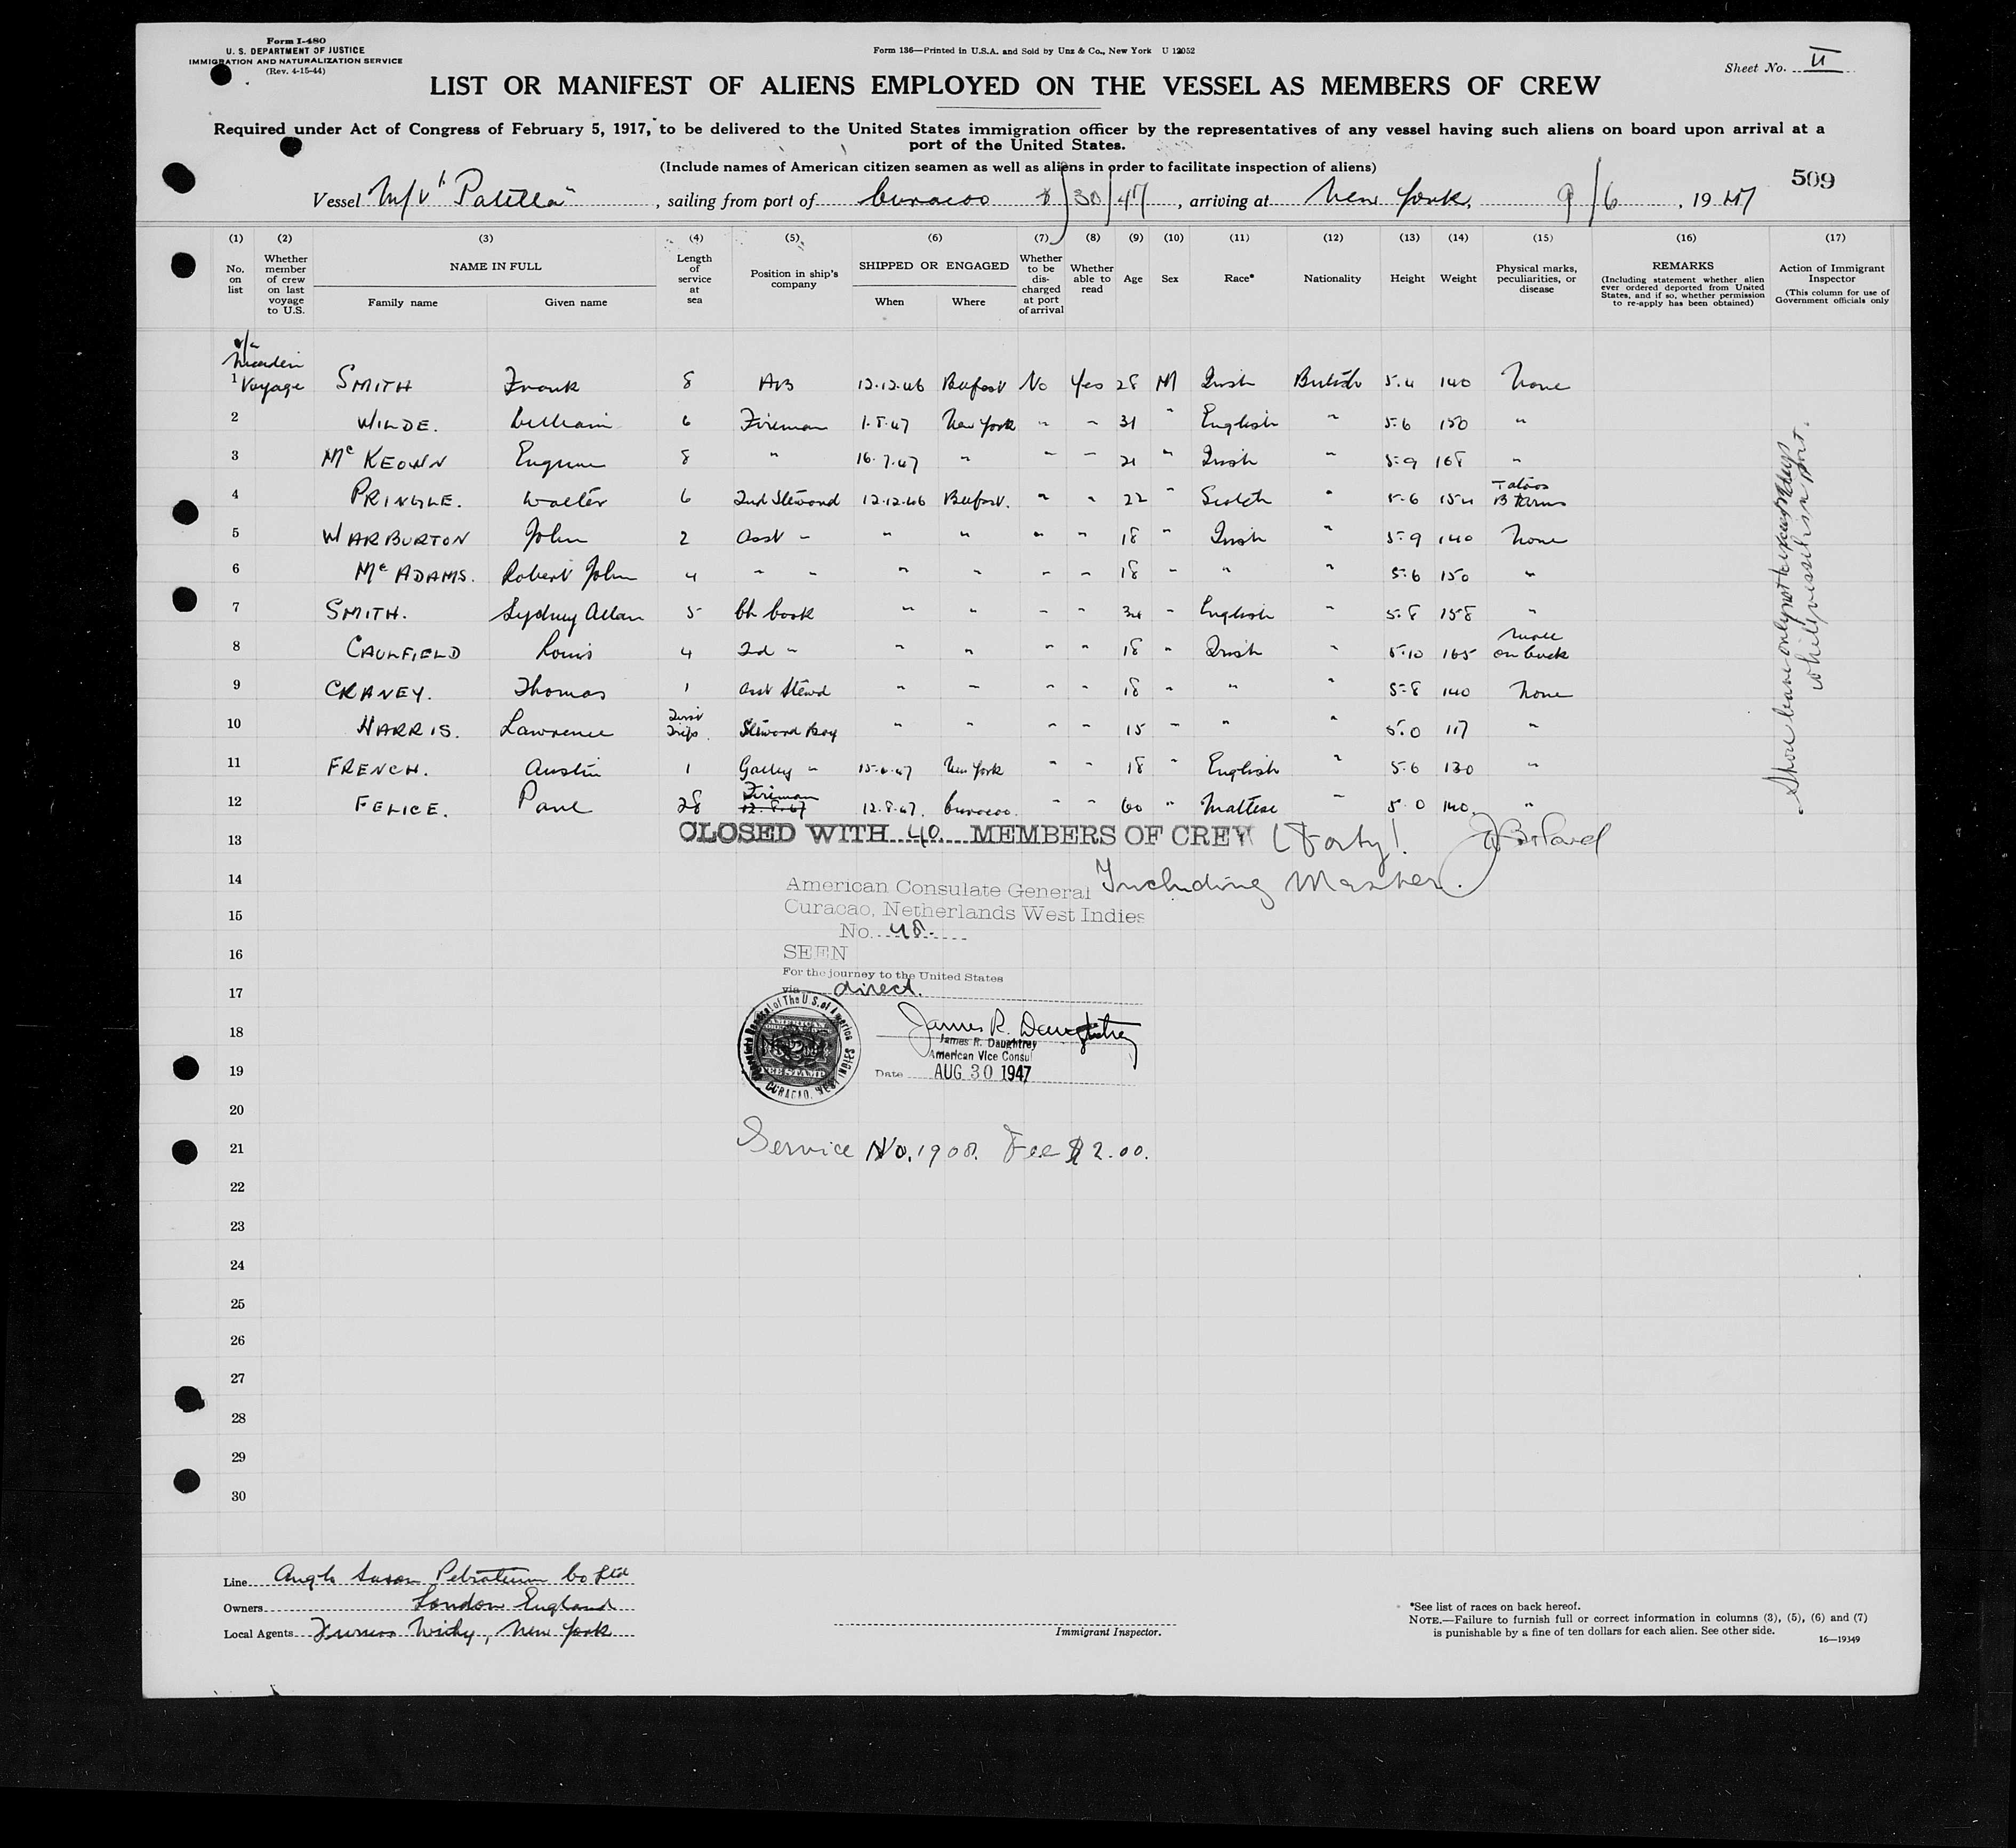 Form I-480
U. S. DEPARTMENT OF JUSTICE
IMMIGRATION AND NATURALIZATION SERVICE
(Rev. 4-15-44)
Form 136—Printed in U.S.A. and Sold by Unz & Co., New York U 12052
Sheet No. II
LIST OR MANIFEST OF ALIENS EMPLOYED ON THE VESSEL AS MEMBERS OF CREW
Required under Act of Congress of February 5, 1917, to be delivered to the United States immigration officer by the representatives of any vessel having such aliens on board upon arrival at a
port of the United States.
(Include names of American citizen seamen as well as aliens in order to facilitate inspection of aliens)
509
Vessel M/V "Patella", sailing from port of Curacao 8/30/47, arriving at New York, 9/6, 1947
(1) (2) (3) (4) (5) (6) (7) (8) (9) (10) (11) (12) (13) (14) (15) (16) (17)
No. on list
Whether member of crew on last voyage to U.S.
NAME IN FULL
Family name Given name
Length of service at sea
Position in ship's company
SHIPPED OR ENGAGED
When Where
Whether to be discharged at port of arrival
Whether able to read
Age
Sex
Race*
Nationality
Height
Weight
Physical marks, peculiarities, or disease
REMARKS
(Including statement whether alien ever ordered deported from United States, and if so, whether permission to re-apply has been obtained)
Action of Immigrant Inspector
(This column for use of Government officials only
Maiden
1 Voyage SMITH Frank 8 AB 12.12.46 Belfast No Yes 28 M Irish British 5.4 140 None
2 WILDE. William 6 Fireman 1.8.47 New York " " 31 " English " 5.6 150 "
3 Mc KEOWN Eugene 8 " 16.7.47 " " " 21 " Irish 5.9 168 "
4 PRINGLE. Walter 6 2nd Steward 12.12.46 Belfast. " " 22 " Scotch " 5.6 154 Tatoos B Arms
5 WARBURTON John 2 Asst " " " " " 18 " Irish " 5.9 140 None
6 Mc ADAMS. Robert John 4 " " " " " " 18 " " " 5.6 150 "
7 SMITH. Sydney Allan 5 Ch Cook " " " " 34 " English " 5.8 158 "
8 CAULFIELD Louis 4 2nd " " " " " 18 " Irish " 5.10 165 on back
9 CRANEY. Thomas 1 Asst Stewd " " " " 18 " " " 5.8 140 None
10 HARRIS. Lawrence First Trip. Steward Boy " " " " 15 " " " 5.0 117 "
11 FRENCH. Austin 1 Galley " 15.6.47 New York " " 18 " English " 5.6 130 "
12 FELICE. Paul 28 Fireman 12.8.47 12.8.47. Curacao. " " 60 " Maltese " 5.0 140. "
Shore leave only not to exceed days
while vessel is in port.
13 CLOSED WITH 40 MEMBERS OF CREW (Forty).
14 Including Master.
American Consulate General
15 Curacao, Netherlands West Indies
No. 48.
16 SEEN
For the journey to the United States
17 via direct.
18 James R. Daughtrey
James R. Daughtrey
American Vice Consul
19 Date AUG 30 1947
Consulate General of The U.S. of America
AMERICAN
FEE STAMP
CURACAO, WEST INDIES
20
21 Service No. 1908. Fee $2.00.
22
23
24
25
26
27
28
29
30
Line Anglo Saxon Petroleum Co Ltd
Owners London England
Local Agents Furness Withy, New York
Immigrant Inspector.
*See list of races on back hereof.
NOTE.—Failure to furnish full or correct information in columns (3), (5), (6) and (7)
is punishable by a fine of ten dollars for each alien. See other side.
16—19349